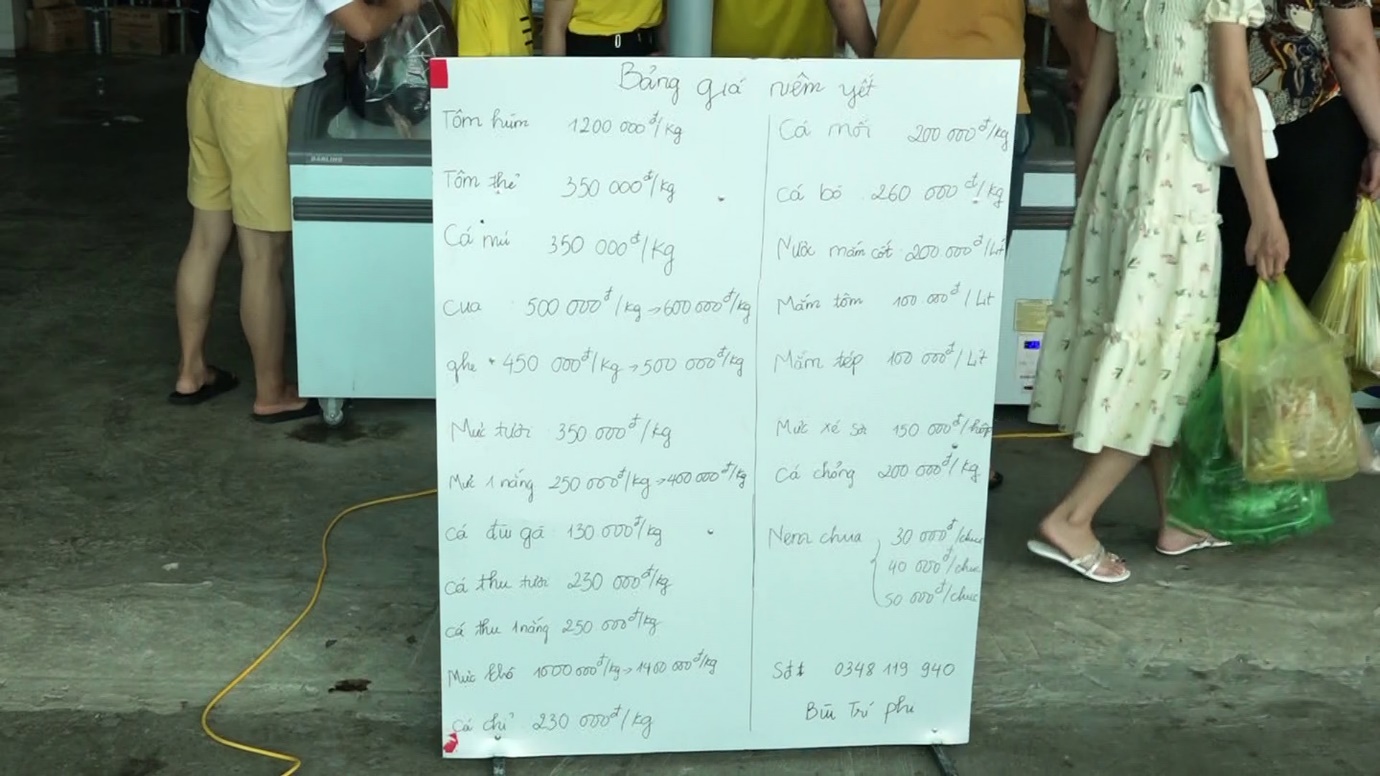 Bảng giá niêm yết
Tôm hùm 1200 000đ/kg
Tôm thẻ 350 000đ/kg
Cá mú 350 000đ/kg
Cua 500 000đ/kg → 600 000đ/kg
ghẹ 450 000đ/kg → 500 000đ/kg
Mực tươi 350 000đ/kg
Mực 1 nắng 250 000đ/kg → 400 000đ/kg
Cá đù gá 130 000đ/kg
Cá thu tươi 230 000đ/kg
Cá thu 1 nắng 250 000đ/kg
Mực khô 1000 000đ/kg → 1400 000đ/kg
Cá chỉ 230 000đ/kg
Cá mối 200 000đ/kg
Cá bò 260 000đ/kg
Nước mắm cốt 200.000đ/Lít
Mắm tôm 100 000đ/Lit
Mắm tép 100 000đ/Lít
Mực xé sợi 150 000đ/hộp
Cá chỏng 200 000đ/kg
Nem chua 30 000đ/chục
40 000đ/chục
50 000đ/chục
Sđt 0348 119 940
Bùi Trí phú
DARLING